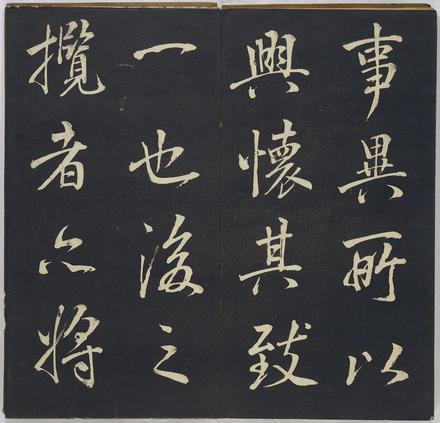 事異所以
興懷其致
一也後之
攬者亦將